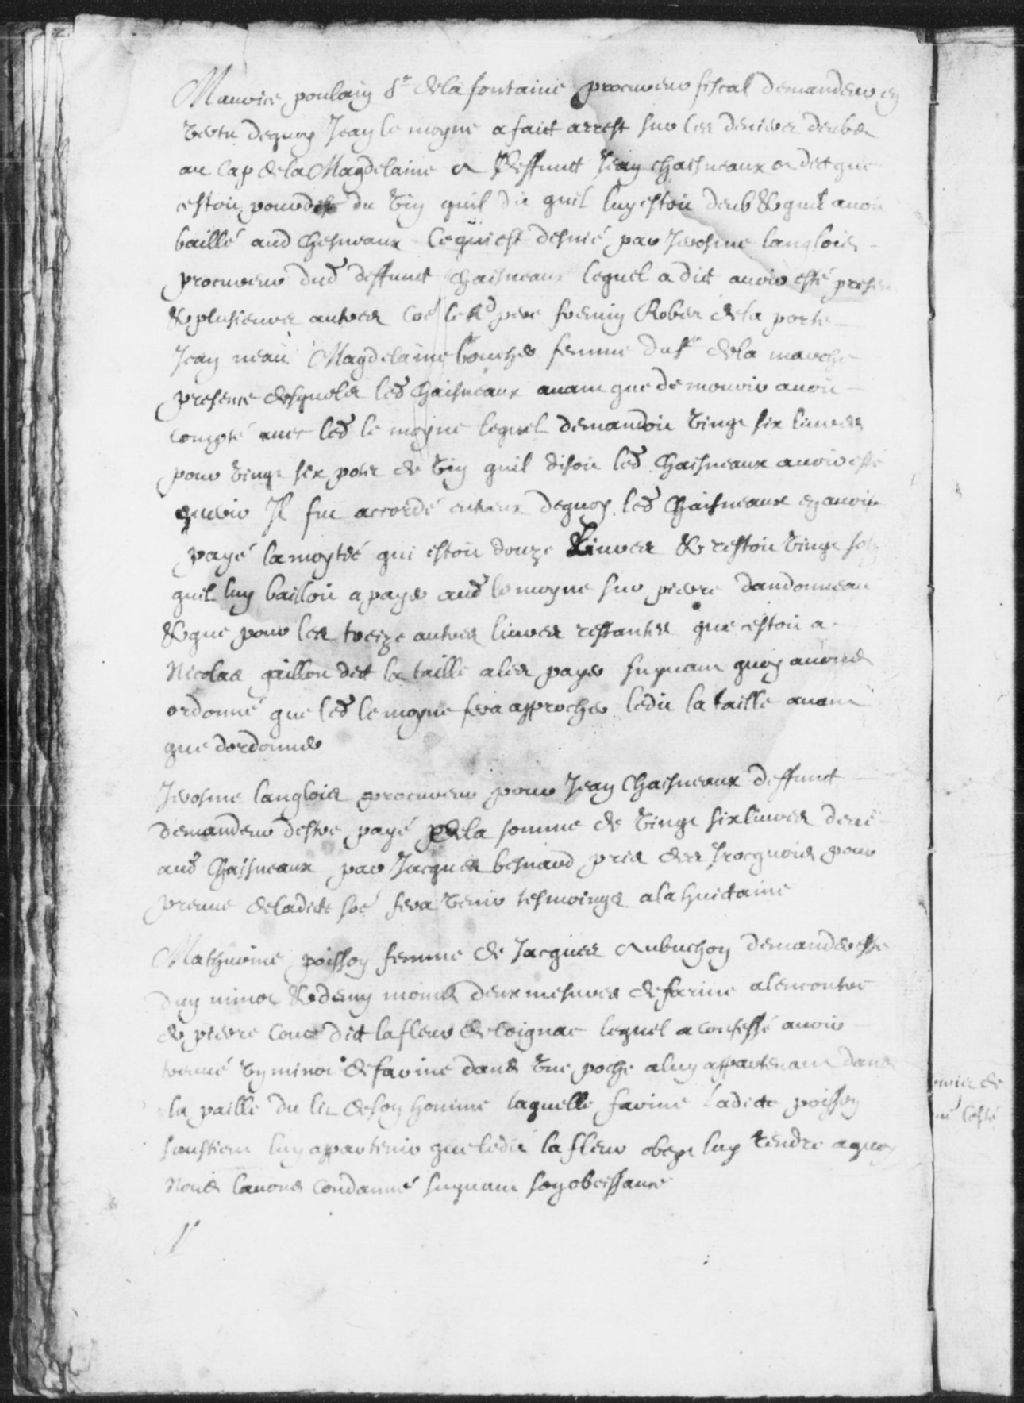 Maurice poulain Sr de la fontaine procureur fiscal demandeur en
vertu dequoy Jean le moyne a fait arrest sur les deniers deubs
au Cap de la Magdelaine a deffunct Jean Chaisneaux a dit que
estoit pour du vin quil dit quil luy estoit deub & quil avoit
baillé aud Chesneaux Ce qui est desnié par Jerosme langlois
procureur dud deffunct Chaisneaux lequel a dit avoir esté present
& plusieurs autres Coe le Rd pere fremin Rober de la porte
Jean neau Magdelaine boucher femme du Sr de la marche
presence desquels led Chaisneaux avant que de mourir avoit
compté avec led le moyne lequel demandoit vingt six livres
pour vingt six pots de vin quil disoit led Chaisneaux avoir esté
Il fut accordé entreux dequoy led Chaisneaux en avoit
payé la moytié qui estoit douze Livres & restoit vingt solz
quil luy bailloit a payer aud le moyne sur pierre dandonneau
& que pour les treize autres livres restantes que cestoit a
Nicolas gaillou dit la taille a les payer suyvant quoy avons
ordonné que led le moyne fera approcher ledit la taille avant
que dordonner
Jerosme langlois procureur pour Jean Chaisneaux deffunct
demandeur destre payé de la somme de vingt six livres deue
aud Chaisneaux par Jacques besnard pris des Irocquois pour
preuve de ladite soe fera venir tesmoings a la huictaine
Mathurine poisson femme de Jacques Aubuchon demanderesse
dun minot & demy moins deux mesures de farine alencontre
de pierre Couc dit lafleur de Coignac lequel a confessé avoir
trouvé un minot de farine dans une poche a luy appartenant dans
la paille du lit de son homme laquelle farine ladite poisson
soustient luy appartenir que ledit la fleur luy rendre a quoy
Nous lavons condamné suyvant son obeissance